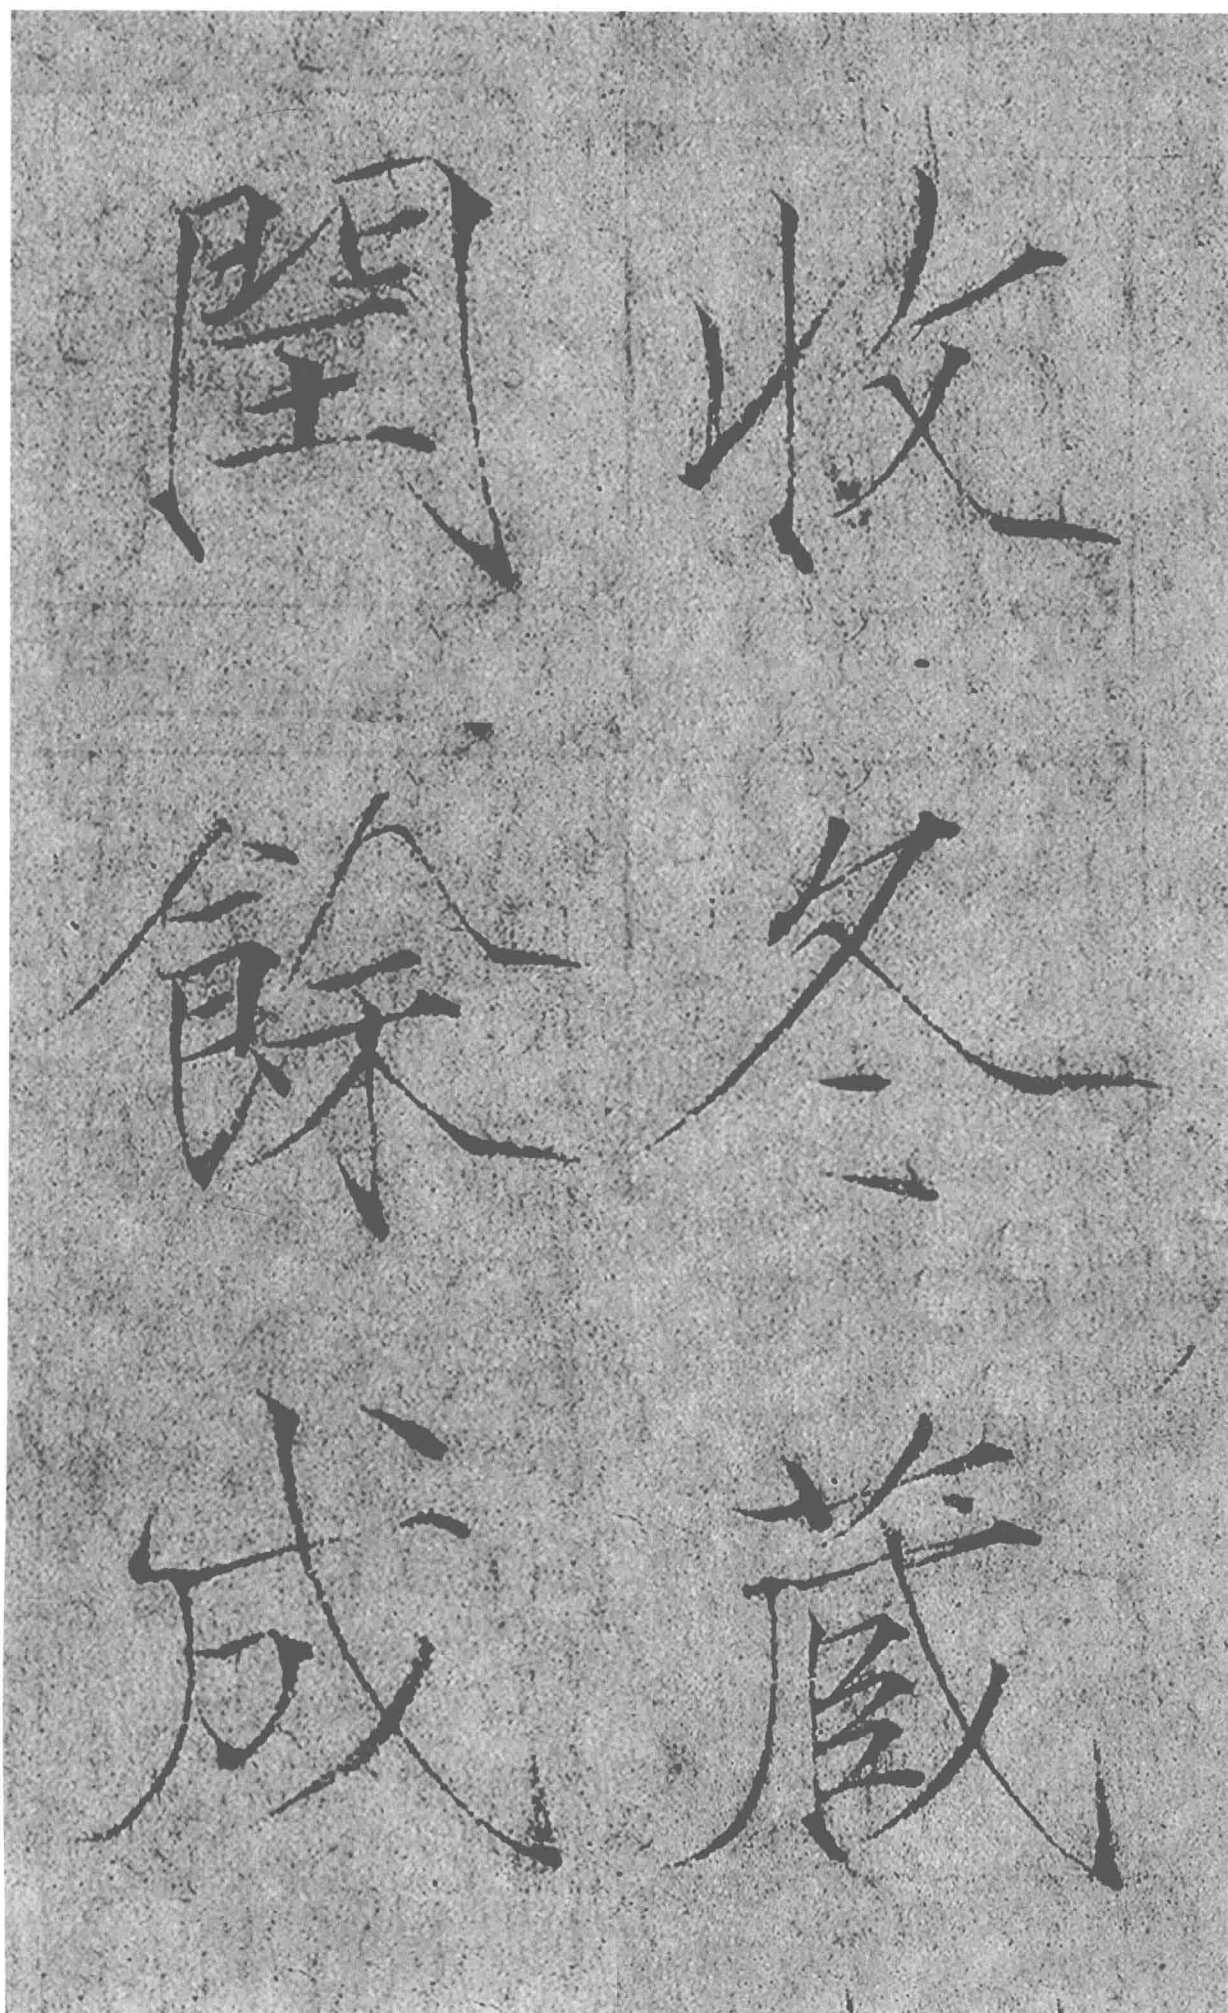 收冬藏
閏餘成